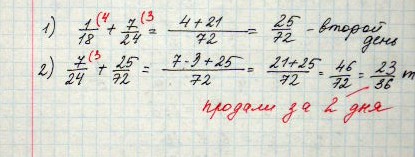 1) 1/18 (4 + 7/24 (3 = 4+21/72 = 25/72 - второй день
2) 7/24 (3 + 25/72 = 7·3+25/72 = 21+25/72 = 46/72 = 23/36 т
продали за 2 дня